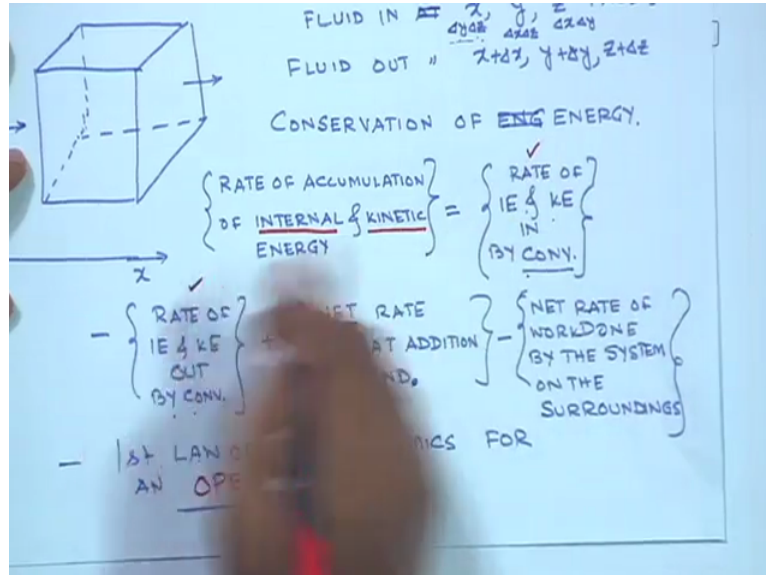 FLUID IN x, y, z
ΔyΔz ΔxΔz ΔxΔy
FLUID OUT " x+Δx, y+Δy, z+Δz
CONSERVATION OF ENERGY.
RATE OF ACCUMULATION
OF INTERNAL & KINETIC
ENERGY
=
RATE OF
IE & KE
IN
BY CONV.
x
- RATE OF
IE & KE
OUT
BY CONV.
+ NET RATE
AT ADDITION
ND.
- NET RATE OF
WORKDONE
BY THE SYSTEM
ON THE
SURROUNDINGS
- 1st LAW O MICS FOR
AN OPE